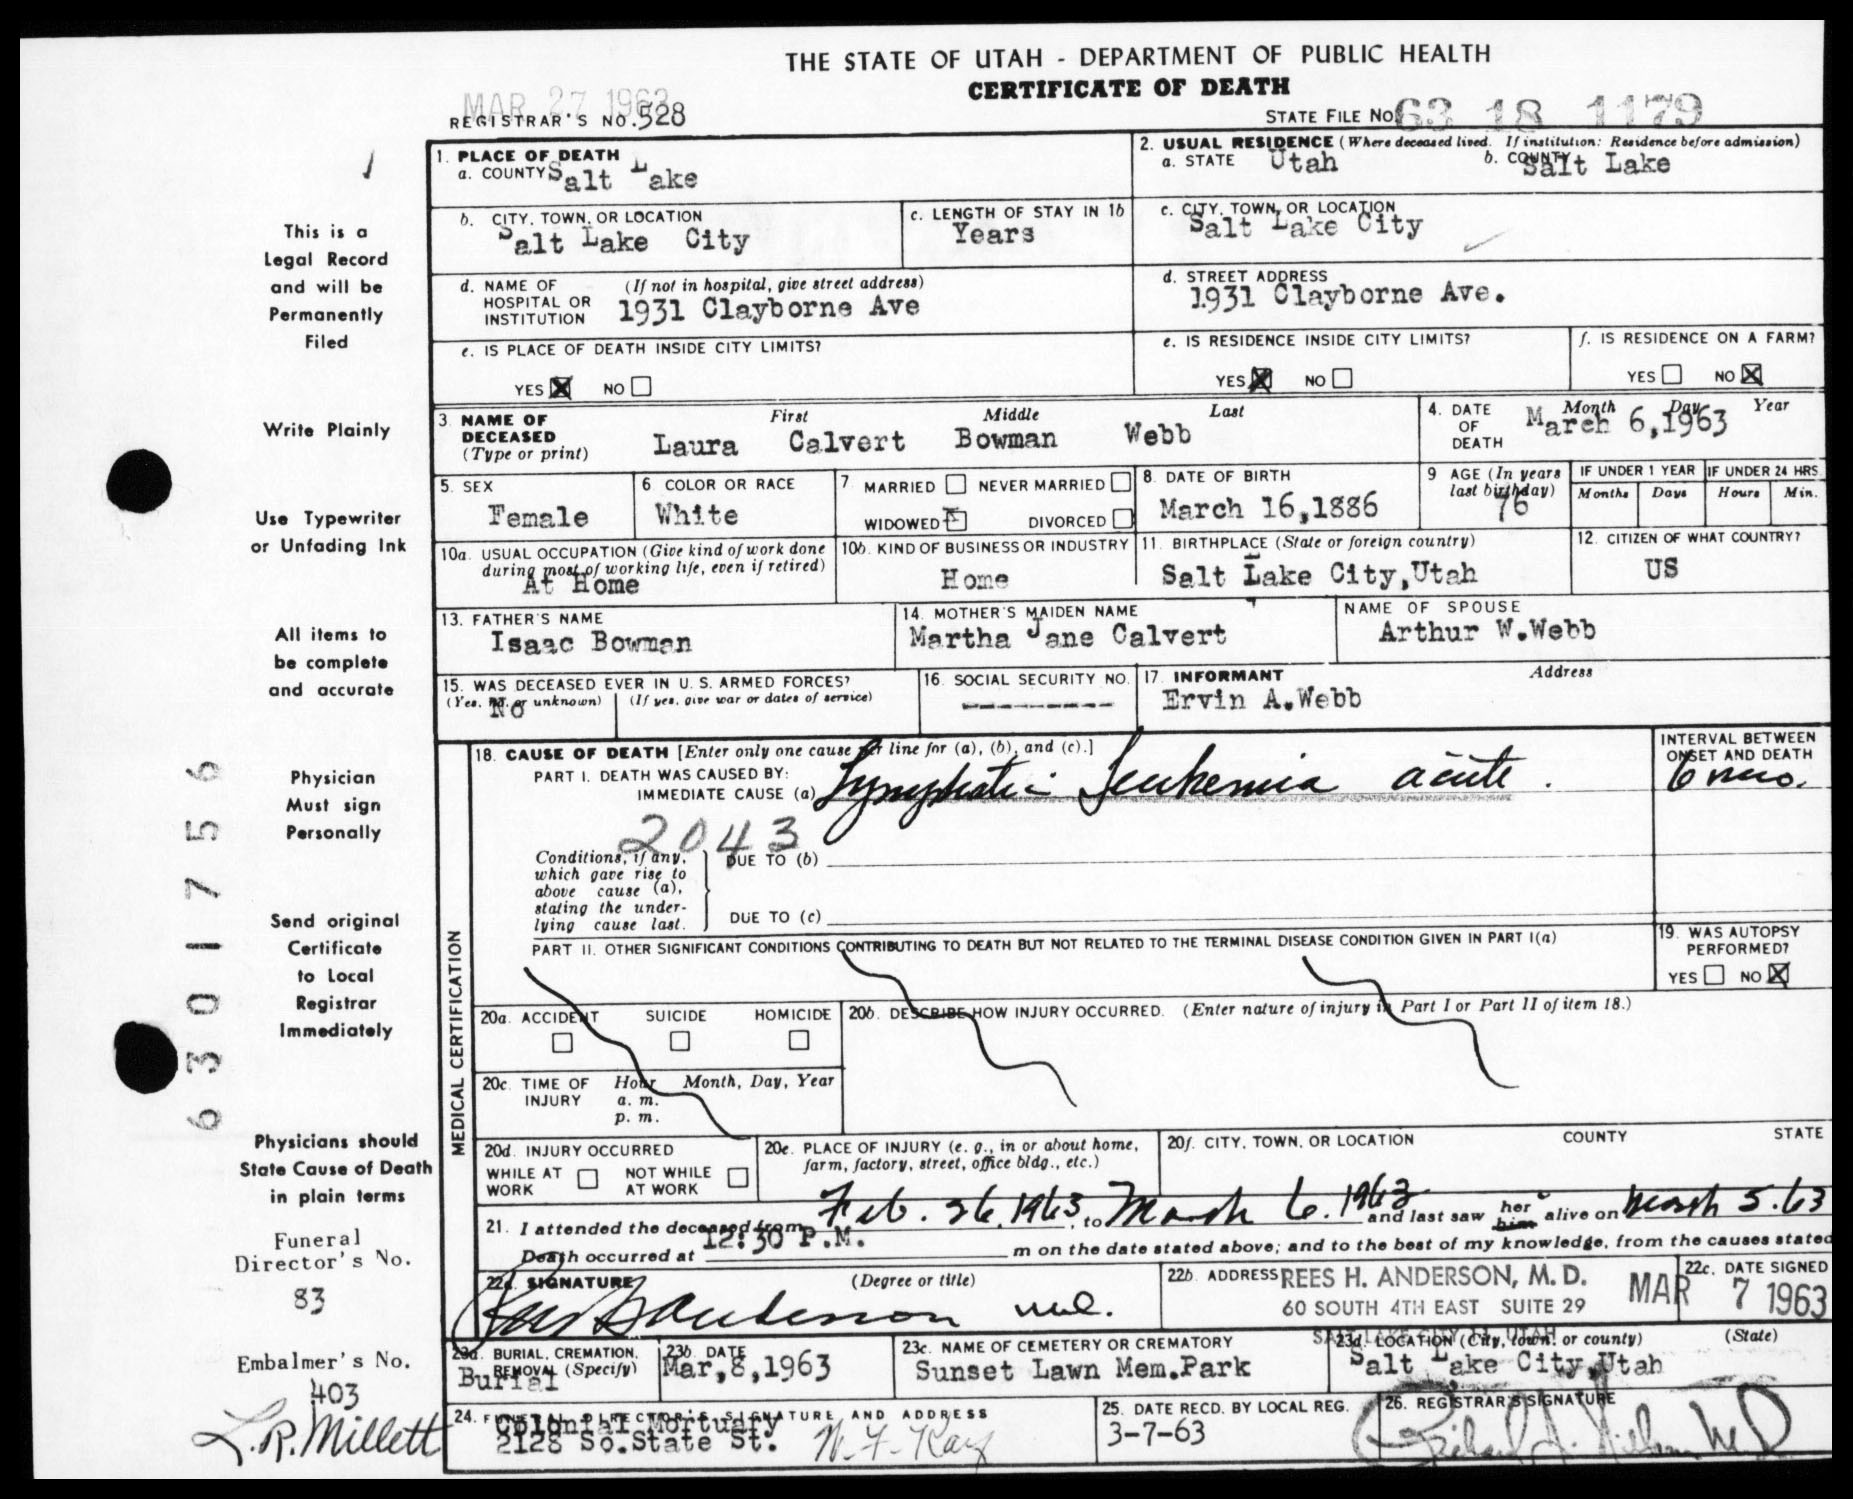 THE STATE OF UTAH - DEPARTMENT OF PUBLIC HEALTH
CERTIFICATE OF DEATH
MAR 27 1963
REGISTRAR'S NO. 528
STATE FILE NO. 63 18 1179
1. PLACE OF DEATH
a. COUNTY Salt Lake
2. USUAL RESIDENCE (Where deceased lived. If institution: Residence before admission)
a. STATE Utah b. COUNTY Salt Lake
b. CITY, TOWN, OR LOCATION
Salt Lake City
c. LENGTH OF STAY IN 1b
Years
c. CITY, TOWN, OR LOCATION
Salt Lake City
d. NAME OF HOSPITAL OR INSTITUTION (If not in hospital, give street address)
1931 Clayborne Ave
d. STREET ADDRESS
1931 Clayborne Ave.
e. IS PLACE OF DEATH INSIDE CITY LIMITS?
YES X NO
e. IS RESIDENCE INSIDE CITY LIMITS?
YES X NO
f. IS RESIDENCE ON A FARM?
YES NO X
3. NAME OF DECEASED (Type or print)
First Middle Last
Laura Calvert Bowman Webb
4. DATE OF DEATH Month Day Year
March 6,1963
5. SEX
Female
6 COLOR OR RACE
White
7. MARRIED NEVER MARRIED
WIDOWED X DIVORCED
8. DATE OF BIRTH
March 16,1886
9 AGE (In years last birthday)
76
IF UNDER 1 YEAR
Months Days
IF UNDER 24 HRS.
Hours Min.
10a. USUAL OCCUPATION (Give kind of work done during most of working life, even if retired)
At Home
10b. KIND OF BUSINESS OR INDUSTRY
Home
11. BIRTHPLACE (State or foreign country)
Salt Lake City,Utah
12. CITIZEN OF WHAT COUNTRY?
US
13. FATHER'S NAME
Isaac Bowman
14. MOTHER'S MAIDEN NAME
Martha Jane Calvert
NAME OF SPOUSE
Arthur W.Webb
15. WAS DECEASED EVER IN U. S. ARMED FORCES?
(Yes, no, or unknown) (If yes, give war or dates of service)
No
16. SOCIAL SECURITY NO.
----------
17. INFORMANT Address
Ervin A.Webb
MEDICAL CERTIFICATION
18. CAUSE OF DEATH [Enter only one cause per line for (a), (b), and (c).]
PART I. DEATH WAS CAUSED BY:
IMMEDIATE CAUSE (a) Lymphatic Leukemia acute.
INTERVAL BETWEEN ONSET AND DEATH
6 mos.
2043
Conditions, if any, which gave rise to above cause (a), stating the underlying cause last.
DUE TO (b)
DUE TO (c)
PART II. OTHER SIGNIFICANT CONDITIONS CONTRIBUTING TO DEATH BUT NOT RELATED TO THE TERMINAL DISEASE CONDITION GIVEN IN PART I(a)
19. WAS AUTOPSY PERFORMED?
YES NO X
20a. ACCIDENT SUICIDE HOMICIDE
20b. DESCRIBE HOW INJURY OCCURRED. (Enter nature of injury in Part I or Part II of item 18.)
20c. TIME OF INJURY Hour Month, Day, Year
a. m.
p. m.
20d. INJURY OCCURRED
WHILE AT WORK NOT WHILE AT WORK
20e. PLACE OF INJURY (e. g., in or about home, farm, factory, street, office bldg., etc.)
20f. CITY, TOWN, OR LOCATION COUNTY STATE
21. I attended the deceased from Feb. 26, 1963, to March 6. 1963 and last saw her him alive on March 5. 63
Death occurred at 12:30 P.M. m on the date stated above; and to the best of my knowledge, from the causes stated
22a. SIGNATURE (Degree or title)
Rees H Anderson md.
22b. ADDRESS REES H. ANDERSON, M. D.
60 SOUTH 4TH EAST SUITE 29
SALT LAKE CITY 11, UTAH
22c. DATE SIGNED
MAR 7 1963
23a. BURIAL, CREMATION, REMOVAL (Specify)
Burial
23b. DATE
Mar,8,1963
23c. NAME OF CEMETERY OR CREMATORY
Sunset Lawn Mem.Park
23d. LOCATION (City, town, or county) (State)
Salt Lake City,Utah
24. FUNERAL DIRECTOR'S SIGNATURE AND ADDRESS
Colonial Mortuary
2128 So.State St.
25. DATE RECD. BY LOCAL REG.
3-7-63
26. REGISTRAR'S SIGNATURE
This is a
Legal Record
and will be
Permanently
Filed
Write Plainly
Use Typewriter
or Unfading Ink
All items to
be complete
and accurate
Physician
Must sign
Personally
Send original
Certificate
to Local
Registrar
Immediately
Physicians should
State Cause of Death
in plain terms
Funeral
Director's No.
83
Embalmer's No.
403
L.R. Millett
6301756